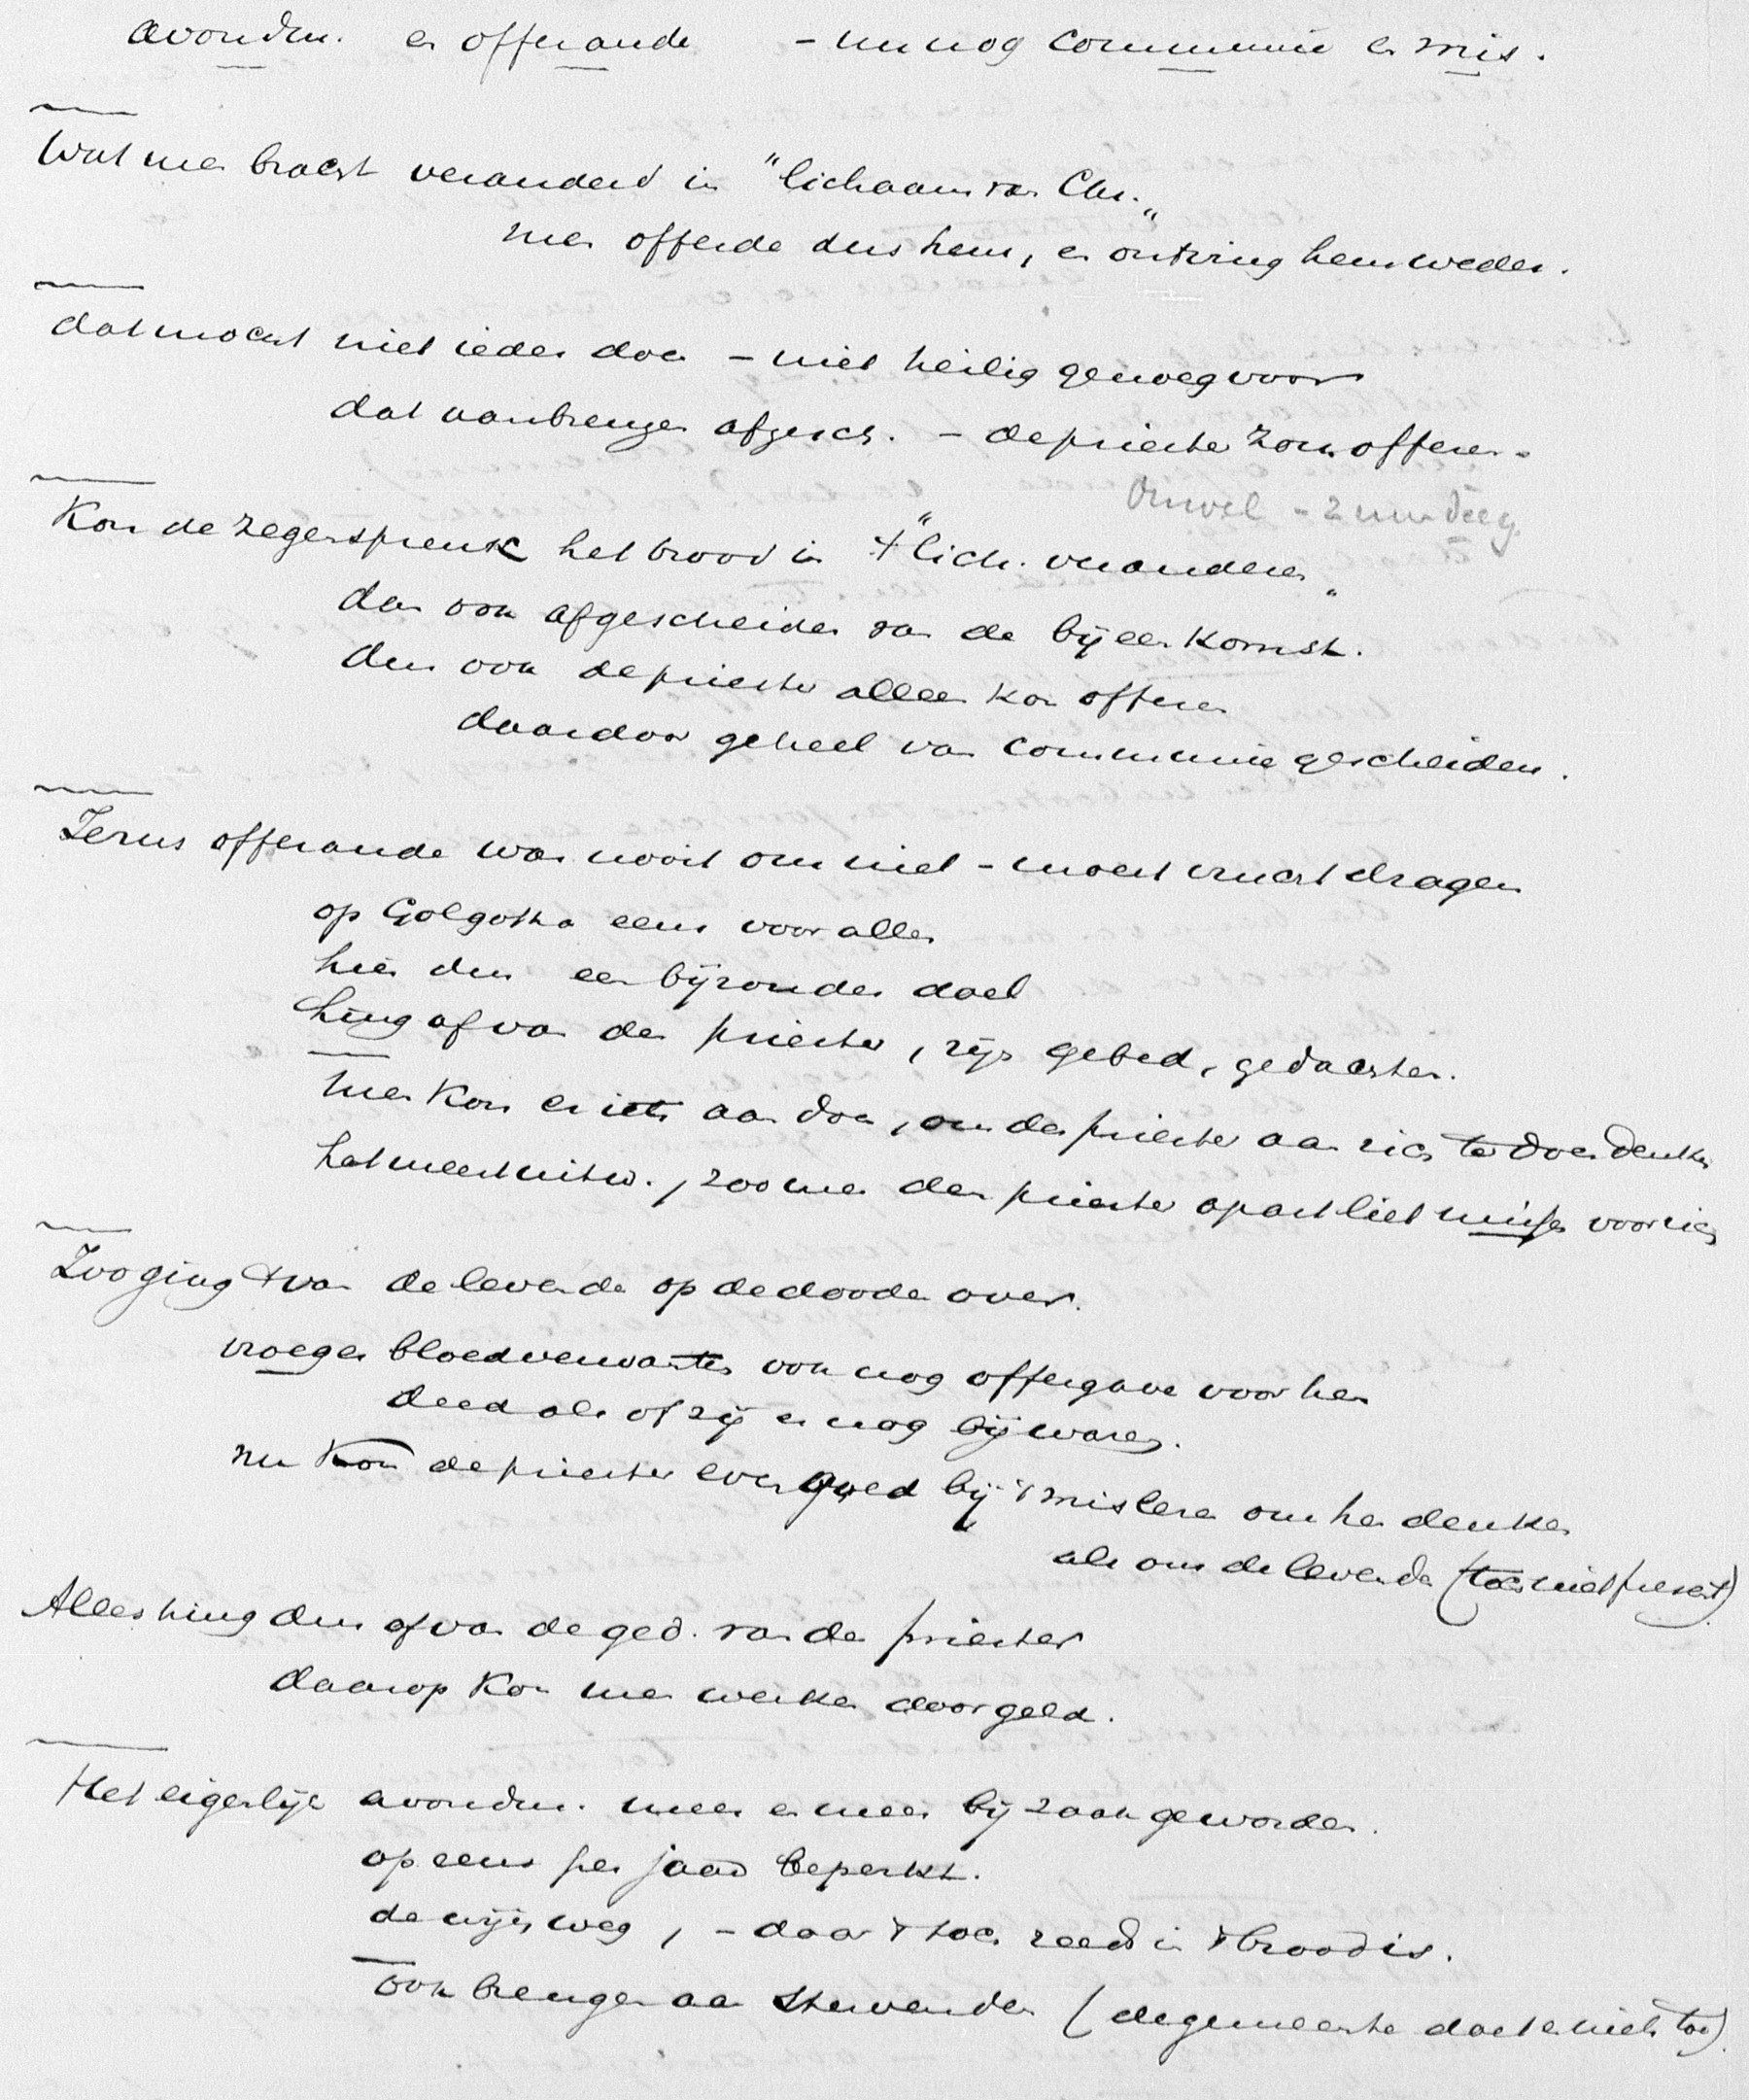 avondm. en offerande - nu nog communie en mis.
Wat men bracht veranderd in "lichaam van Chr."
men offerde dus hem, en ontving hem weder.
dat mocht niet ieder doen - niet heilig genoeg voor
dat aanbrengen afgesch. - de priester zou offeren.
Kon de zegenspreuk het brood in 't "lich. veranderen"
dan ook afgescheiden van de bijeenkomst.
dus ook de priester alleen kon offeren
daardoor geheel van communie gescheiden.
Jezus offerande was nooit om niet - moest vrucht dragen
op Golgotha eens voor allen
hier dus een bijzonder doel
hing af van den priester, zijn gebed, gedachten.
Men kon er iets aan doen, om den priester aan zich te doen denken
het meest uitw., zoo men den priester apart liet missen voor zich
Zoo ging 't van de levenden op de dooden over.
vroeger bloedverwanten ook nog offergave voor hen
deed als of zij er nog bij waren.
nu kon de priester even goed bij 't mislezen om hen denken
als om de levenden (toch niet present)
Alles hing dus af van de ged. van den priester
daarop kon men werken door geld.
Het eigenlijke avondm. meer en meer bijzaak geworden.
op eens per jaar beperkt.
de wijn weg, - daar 't toch reeds in 't brood is.
ook brengen aan stervenden (de gemeente doet er niets toe)